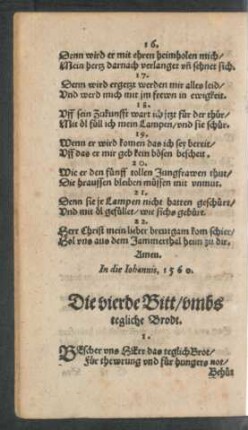 16.
Denn wird er mit ehren heimholen mich/
Mein hertz darnach verlanget vñ sehnet sich.
17.
Denn wird ergetzt werden mir alles leid/
Und werd mich mit jm frewn in ewigkeit.
18.
Uff sein Zukunfft wart ich jtzt für der thür/
Mit öl füll ich mein Lampen/vnd sie schür.
19.
Wenn er wird komen das ich sey bereit/
Uff das er mir geb kein bösen bescheit.
20.
Wie er den fünff tollen Jungfrawen thut/
Die draussen bleiben müssen mit vnmut.
21.
Denn sie je Lampen nicht hatten geschürt/
Und mit öl gefüllet/wie sichs gebürt.
22.
Herr Christ mein lieber breutgam kom schier/
Hol vns aus dem Jammerthal heim zu dir.
Amen.
In die Iohannis, 1560.
Die vierde Bitt/vmbs
tegliche Brodt.
1.
BEscher vns HErr das teglich Brot/
Für thewrung vnd für hungers not/
Behüt